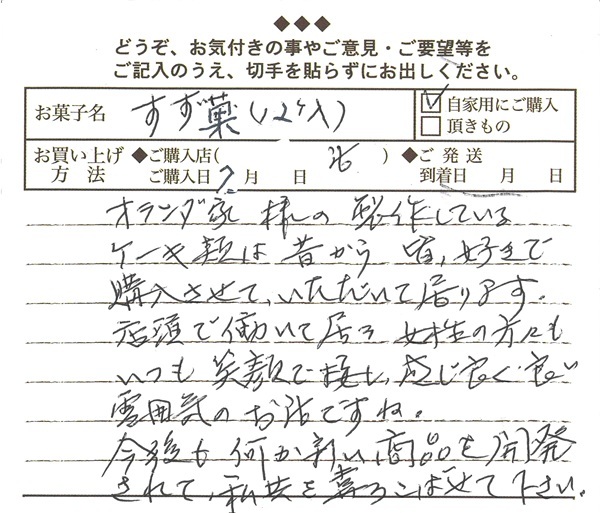 ◆◆◆
どうぞ、お気付きの事やご意見・ご要望等を
ご記入のうえ、切手を貼らずにお出しください。
お菓子名 すず菓(12ケ入) ☑自家用にご購入
□頂きもの
お買い上げ方法 ◆ご購入店( ) ◆ご発送
ご購入日 7月 日 到着日 月 日
オランダ家 様の 製作している
ケーキ類は 昔から 皆、好きで
購入させて、いただいて居ります。
店頭で働いて居る 女性の方にも
いつも 笑顔で接し、感じ良く 良い
雰囲気の お店ですね。
今後も 何か新しい商品を開発
されて、私共を喜ろこばせて下さい。